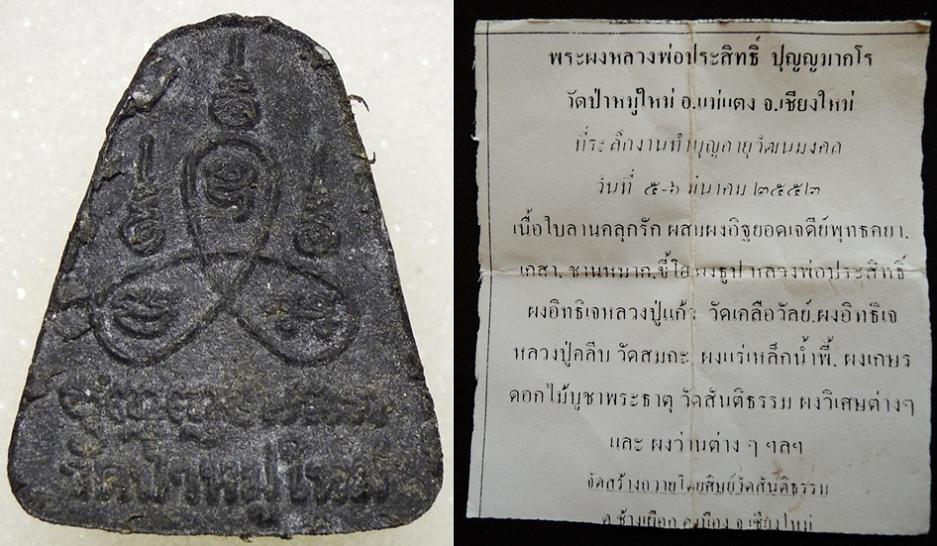 วัดป่าหมู่ใหม่
พระผงหลวงพ่อประสิทธิ์ ปุญญมากโร
วัดป่าหมู่ใหม่ อ.แม่แตง จ.เชียงใหม่
ที่ระลึกงานทำบุญอายุวัฒนมงคล
วันที่ ๕-๖ มีนาคม ๒๕๕๒
เนื้อใบลานคลุกรัก ผสมผงอิฐยอดเจดีย์พุทธคยา.
เกสา. ชานหมาก. ผงธูป หลวงพ่อประสิทธิ์
ผงอิทธิเจหลวงปู่แก้ว วัดเครือวัลย์.ผงอิทธิเจ
หลวงปู่คลีบ วัดสมถะ. ผงแร่เหล็กน้ำพี้. ผงเกษร
ดอกไม้บูชาพระธาตุ วัดสันติธรรม ผงวิเศษต่างๆ
และ ผงว่านต่าง ๆ ฯลฯ
จัดสร้างถวายโดยศิษย์วัดสันติธรรม
ต.ช้างเผือก อ.เมือง จ.เชียงใหม่